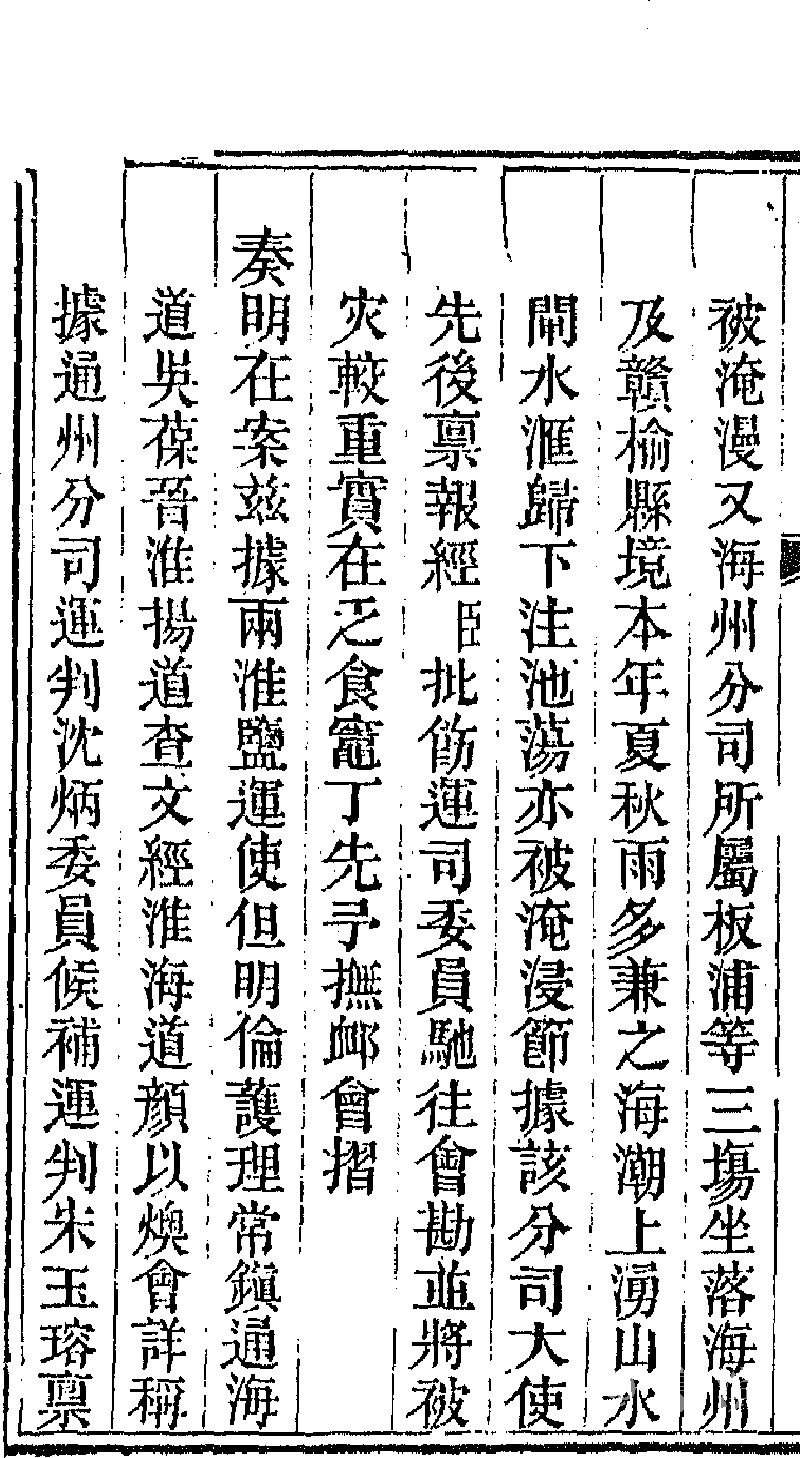 被淹漫又海州分司所屬板浦等三場坐落海州
及贛榆縣境本年夏秋雨多兼之海潮上湧山水
閘水滙歸下注池蕩亦被淹浸節據該分司大使
先後禀報經臣批飭運司委員馳往會勘並將被
灾較重實在乏食竈丁先予撫卹會摺
奏明在案茲據兩淮鹽運使但明倫護理常鎮通海
道吳葆晉淮揚道查文經淮海道顏以燠會詳稱
據通州分司運判沈炳委員候補運判朱玉瑢禀